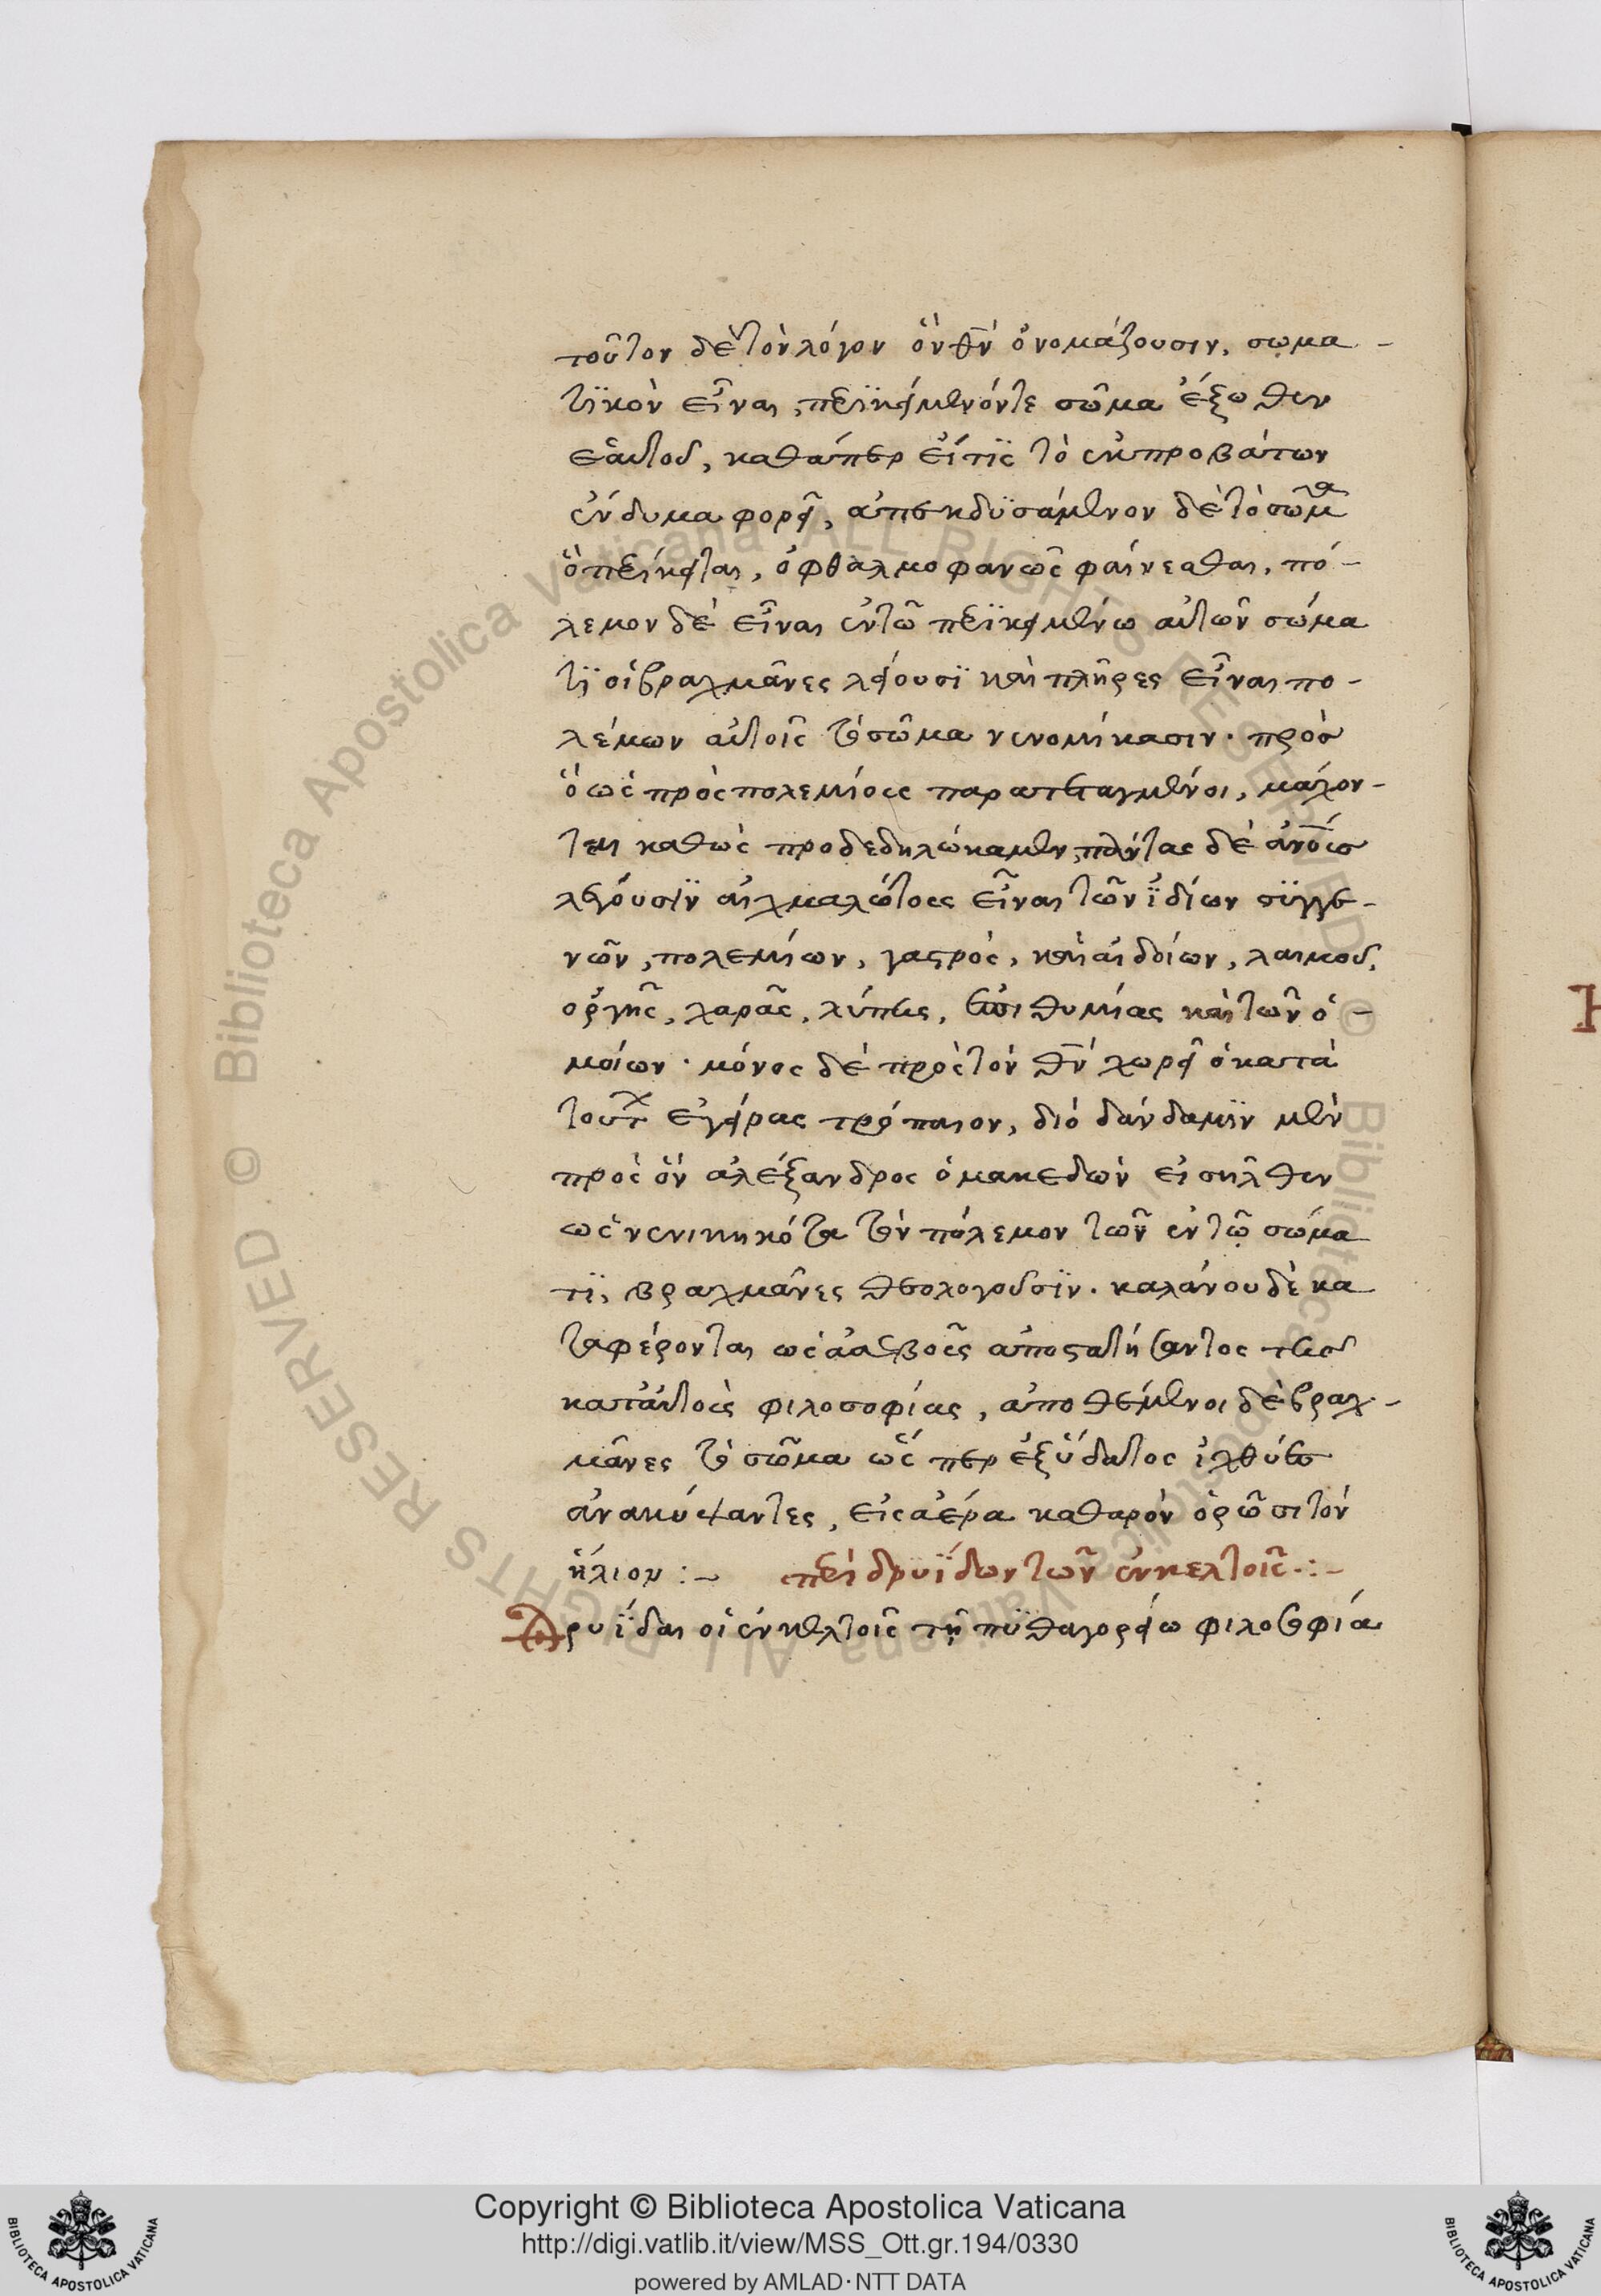 τοῦτον δὲ τὸν λόγον ὃν θν ὀνομάζουσιν, σωμα-
τϊκὸν εἶναι, περϊκείμενόντε σῶμα ἔξωθεν
ἑαυτοῦ, καθάπερ εἴ τϊς τὸ ἐκ προβάτων
ἔνδυμα φορεῖ, ἀπεκδϋσάμενον δὲ τὸ σῶμα
ὃ περίκειται, ὀφθαλμοφανῶς φαίνεσθαι, πό-
λεμον δὲ εἶναι ἐν τῶ περϊκειμένω αὐτῶν σώμα
τϊ οἱ βραχμᾶνες λέγουσϊ καὶ πλῆρες εἶναι πο-
λέμων αὐτοῖς τὸ σῶμα νενομίκασιν· πρὸσ
ὃ ὡς πρὸς πολεμίους παρατεταγμένοι, μάχον-
ται καθὼς προδεδηλώκαμεν, πάντας δὲ ἀνοῖσ
λέγουσϊν αἰχμαλώτους εἶναι τῶν ϊδίων σϋγγε-
νῶν, πολεμίων, γαστρὸς, καὶ αἰδοίων, λαιμοῦ,
ὀργῆς, χαρᾶς, λύπης, ἐπιθυμίας καὶ τῶν ὁ-
μοίων· μόνος δὲ πρὸς τὸν θν χωρεῖ ὁ κατὰ
τούτ ἐγείρας τρόπαιον, διὸ δάνδαμϊν μὲν
πρὸς ὃν ἀλέξανδρος ὁ μακεδὼν εἰσῆλθεν
ὡς νενικηκότα τὸν πόλεμον τῶν ἐν τῶ σώμα
τϊ, βραχμᾶνες θεολογοῦσϊν· καλάνου δὲ κα
ταφέρονται ὡς ἀσεβοῦς ἀποστατήσαντος τῆσ
κατ' αὐτοὺς φιλοσοφίας, ἀποθέμενοι δὲ βραχ-
μᾶνες τὸ σῶμα ὥσπερ ἐξ ὕδατος ἰχθύεσ
ἀνακύψαντες, εἰς ἀέρα καθαρὸν ὁρῶσι τὸν
ἥλιον :- περὶ δρυϊδων τῶν ἐν κελτοῖς·:-
Δρυΐδαι οἱ ἐν κελτοῖς τῇ πϋθαγορείω φιλοσοφία
Copyright © Biblioteca Apostolica Vaticana
http://digi.vatlib.it/view/MSS_Ott.gr.194/0330
powered by AMLAD·NTT DATA
BIBLIOTECA APOSTOLICA VATICANA
BIBLIOTECA APOSTOLICA VATICANA
© Biblioteca Apostolica Vaticana ALL RIGHTS RESERVED © Biblioteca Apostolica Vaticana ALL RIGHTS RESERVED